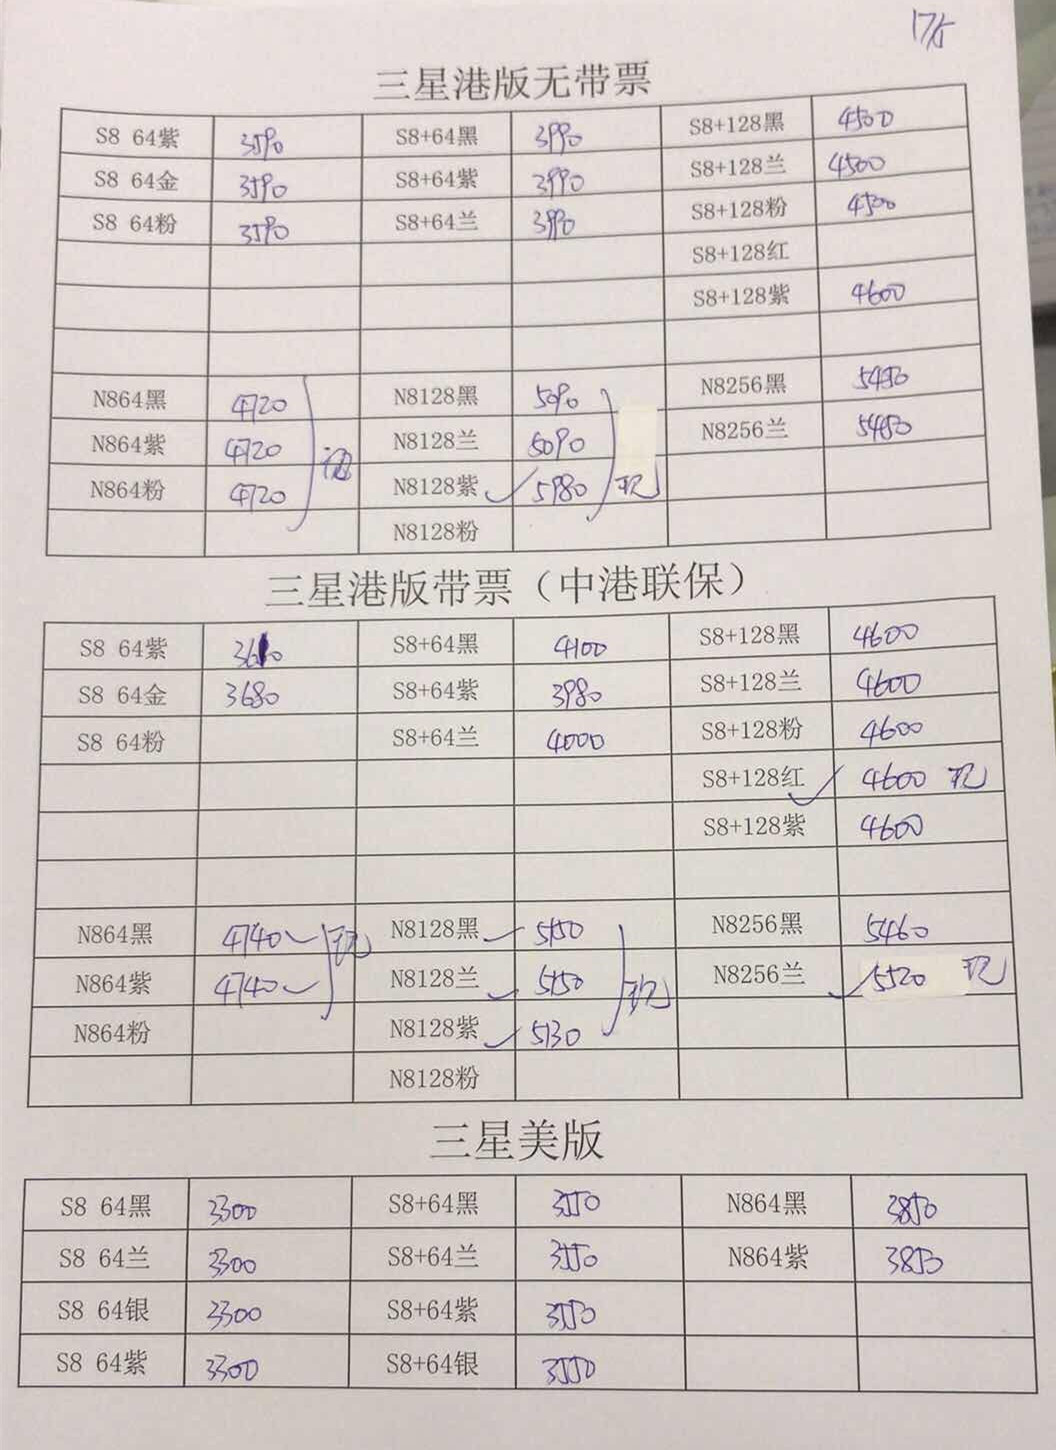 三星港版无带票
S8 64紫 3590 S8+64黑 3990 S8+128黑 4500
S8 64金 3590 S8+64紫 3990 S8+128兰 4500
S8 64粉 3590 S8+64兰 3990 S8+128粉 4500
S8+128红
S8+128紫 4600
N864黑 4720 N8128黑 5090 N8256黑 5450
N864紫 4720 N8128兰 5090 N8256兰 5480
N864粉 4720 N8128紫 5980 现
N8128粉
三星港版带票（中港联保）
S8 64紫 S8+64黑 4100 S8+128黑 4600
S8 64金 3680 S8+64紫 3980 S8+128兰 4600
S8 64粉 S8+64兰 4000 S8+128粉 4600
S8+128红 4600 现
S8+128紫 4600
N864黑 4740 现 N8128黑 5150 N8256黑 5460
N864紫 4740 N8128兰 5150 现 N8256兰 5520 现
N864粉 N8128紫 5130
N8128粉
三星美版
S8 64黑 3300 S8+64黑 3550 N864黑 3850
S8 64兰 3300 S8+64兰 3550 N864紫 3850
S8 64银 3300 S8+64紫 3550
S8 64紫 3300 S8+64银 3550